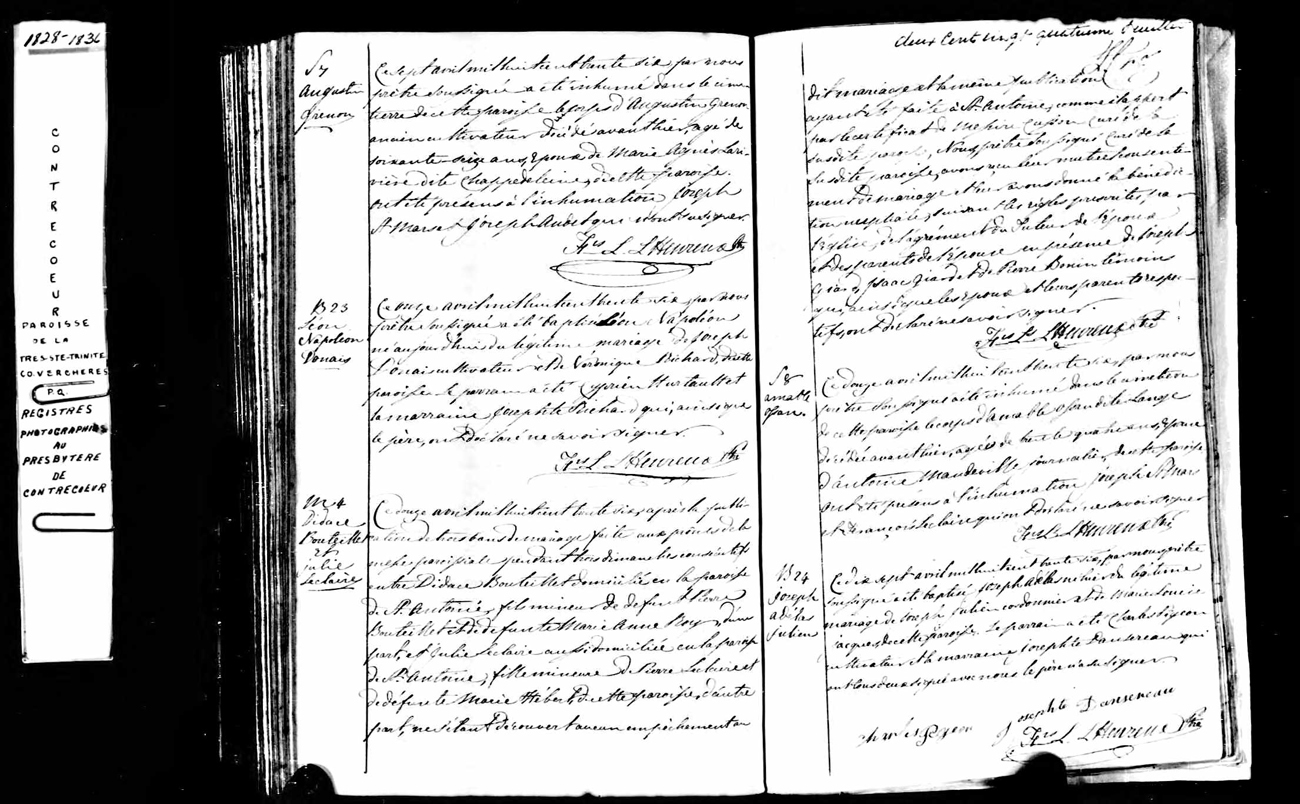 1828-1836
CONTRECOEUR
PAROISSE
DE LA
TRES-STE-TRINITE
CO. VERCHERES
P.Q.
REGISTRES
PHOTOGRAPHIES
AU
PRESBYTERE
DE
CONTRECOEUR
S7
Augustin
Grenon
Ce sept avril mil huit cent trente six par nous
prêtre soussigné a été inhumé dans le cime-
tierre de cette paroisse le corps d'Augustin Grenon
ancien cultivateur décédé avant hier, agé de
soixante-seize ans, Epoux de Marie Agnès Lari-
vière dite Chappedelaine, de cette paroisse.
ont été présens à l'inhumation Joseph
St Mars et Joseph Audet qui n'ont su signer.
Frs L. L'Heureux Ptre
B23
Léon
Napoléon
Donais
Ce onze avril mil huit cent trente six, par nous
prêtre soussigné a été baptisé Léon Napoléon
né aujourd'hui du légitime mariage de Joseph
Donais cultivateur et de Véronique Richard, de cette
paroisse. le parrain a été Cyprien Hurtault et
la marraine Josephte Richard qui, ainsi que
le père, ont déclaré ne savoir signer.
Frs L. L'Heureux Ptre
M4
Didace
Bouteillet
et
Julie
Leclaire
Ce douze avril mil huit cent trente six, après la publi-
cation de trois bans de mariage faite aux prônes de la
messe paroissiale pendant trois dimanches consécutifs
entre Didace Bouteillet domicilié en la paroisse
de St. Antoine, fils mineur de defunt Pierre
Bouteillet et de defunte Marie Anne Roy, d'une
part, et Julie Leclaire aussi domiciliée en la paroisse
de St. Antoine, fille mineure de Pierre Leclaire et
de défunte Marie Hébert, de cette paroisse, d'autre
part, ne s'étant découvert aucun empêchement au
deux cent vingt quatrième feuillet
dit mariage et la même publication
ayant été faite à St. Antoine, comme il appert
par le certificat de Messire Cusson Curé de la
susdite paroisse, Nous, prêtre soussigné Curé de la
susdite paroisse, avons reçu leur mutuel consente-
ment de mariage et leur avons donné la bénédic-
tion nuptiale suivant les règles prescrites par
l'Eglise, de l'agrément du Tuteur de l'époux
et des parents de l'épouse en présence de Joseph
Giard, Isaac Giard et de Pierre Bonin témoins
qui, ainsi que les Epoux et leurs parents respec-
tifs, ont déclaré ne savoir signer.
Frs L. L'Heureux Ptre
S8
amable
Ce douze avril mil huit cent trente six, par nous
prêtre soussigné a été inhumé dans le cimetiere
de cette paroisse le corps d'amable dite Lange
décédée avant hier, agée de trente quatre ans, Epouse
d'antoine Mandeville journalier, de cette paroisse
ont été présens à l'inhumation Joseph St Mars
et François Leclaire qui ont déclaré ne savoir signer
Frs L. L'Heureux Ptre
B24
Joseph
adélar
Julien
Ce dix sept avril mil huit cent trente six, par nous prêtre
soussigné a été baptisé Joseph né hier du légitime
mariage de Joseph Julien cordonnier et de Marie Louise
Jacques, de cette paroisse. Le parrain a été Charles Pigeon
cultivateur et la marraine Josephte Dansereau qui
ont tous deux signé avec nous le père n'a su signer.
Charles Pigeon
Josephte Dansereau
Frs L. L'Heureux Ptre